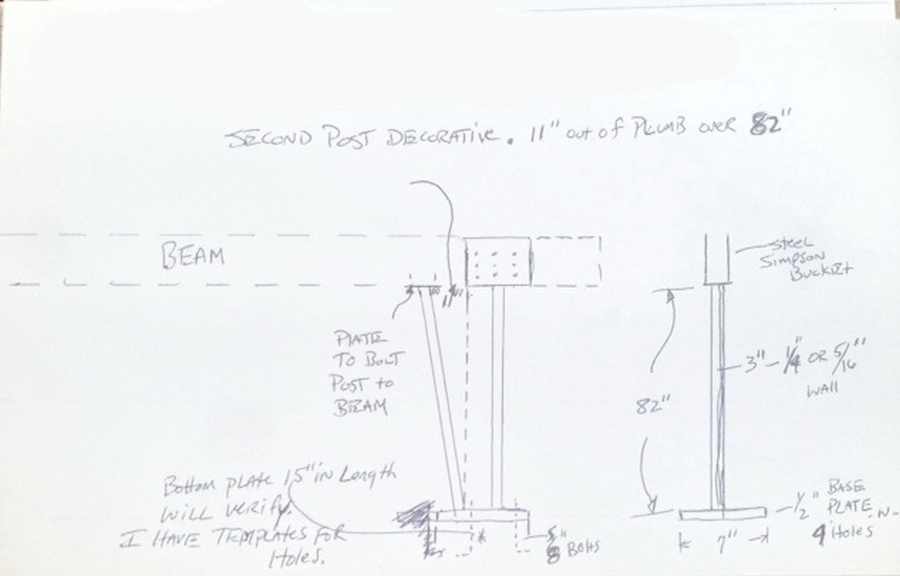 SECOND POST DECORATIVE. 11" out of PLUMB over 82"
BEAM
11"
PLATE
TO BOLT
POST to
BEAM
Bottom plate 15" in Length
WILL VERIFY.
I HAVE TEMPLATES FOR
Holes.
5"
8 Bolts
steel
SIMPSON
Bucket
82"
3" - 1/4 OR 5/16"
WALL
1/2" BASE
PLATE -W-
4 Holes
7"